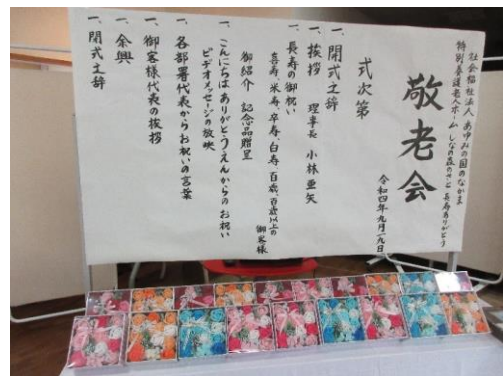 社会福祉法人 あゆみの国のなかま
特別養護老人ホーム しなの森のさと 長寿ありがとう
敬老会
令和四年九月一九日
式次第
一、開式之辞
一、挨拶 理事長 小林亜矢
一、長寿の御祝い
喜寿、米寿、卒寿、白寿、百歳、百歳以上の
御客様
御紹介 記念品贈呈
一、こんにちはありがとうえんからのお祝い
ビデオメッセージの放映
一、各部署代表からお祝いの言葉
一、御客様代表の挨拶
一、余興
一、閉式之辞